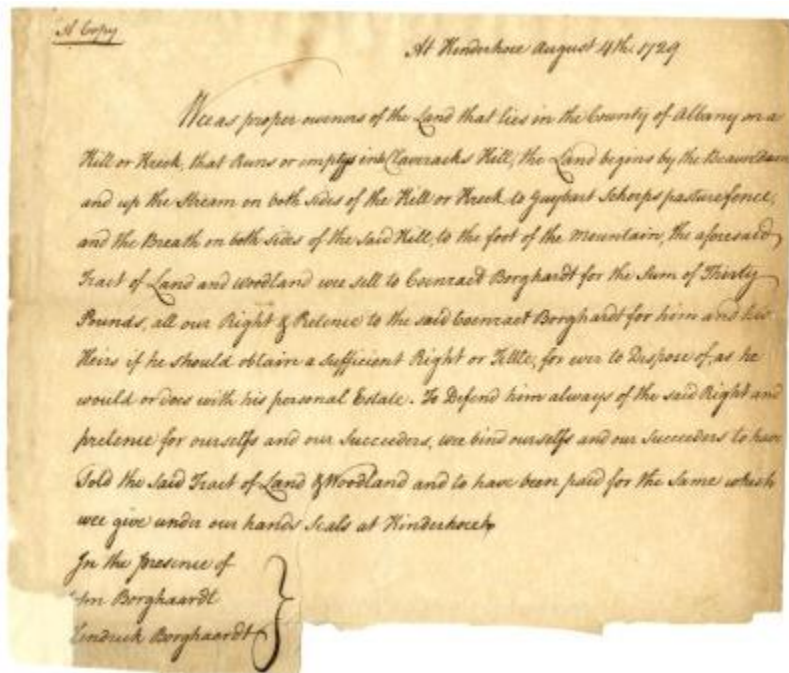 A Copy
At Kinderhoee August 4th. 1729
Wee as proper owners of the Land that lies in the County of Albany on a
Kill or Kreek, that Runs or emptys into Claveracks Kill, the Land begins by the
and up the Stream on both sides of the Kill or Kreek to Guybart Scherps pasture fence,
and the Breath on both sides of the said Kill, to the foot of the Mountain, the aforesaid
Tract of Land and woodland wee sell to Coenraet Borghardt for the Sum of Thirty
Pounds, all our Right & Pretence to the said Coenraet Borghardt for him and his
Heirs if he should obtaim a sufficient Right or Tittle, for ever to Dispose of, as he
would or does with his personal Estate. To Defend him always of the said Right and
pretence for ourselfs and our Succeeders, wee bind ourselfs and our Succeeders to have
Sold the said Tract of Land & Woodland and to have been paid for the same which
wee give under our hands Seals at Kinderhoeck
In the presence of
Borghaardt
Hendrick Borghaardt